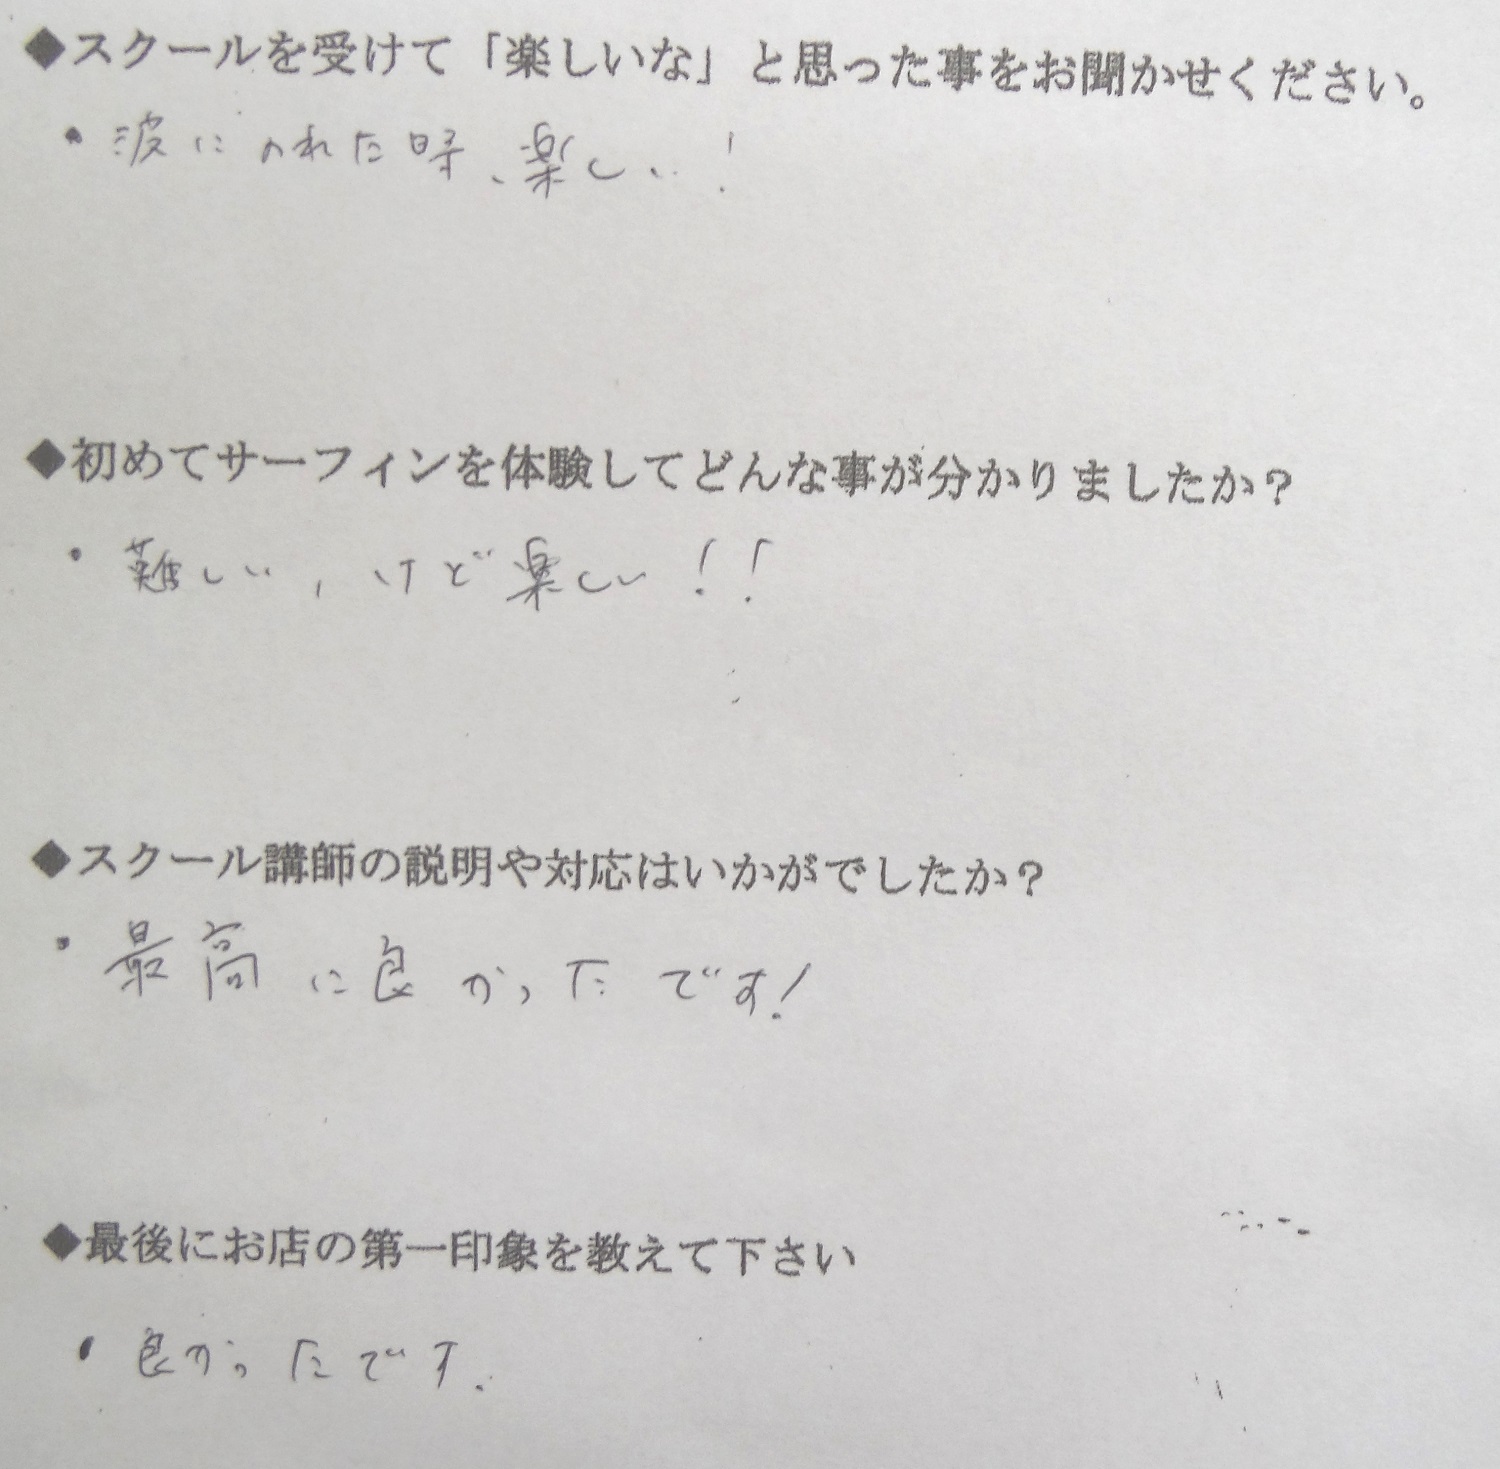 ◆スクールを受けて「楽しいな」と思った事をお聞かせください。
・波にのれた時、楽しい!
◆初めてサーフィンを体験してどんな事が分かりましたか?
・難しい,けど楽しい!!
◆スクール講師の説明や対応はいかがでしたか?
・最高に良かったです!
◆最後にお店の第一印象を教えて下さい
・良かったです.